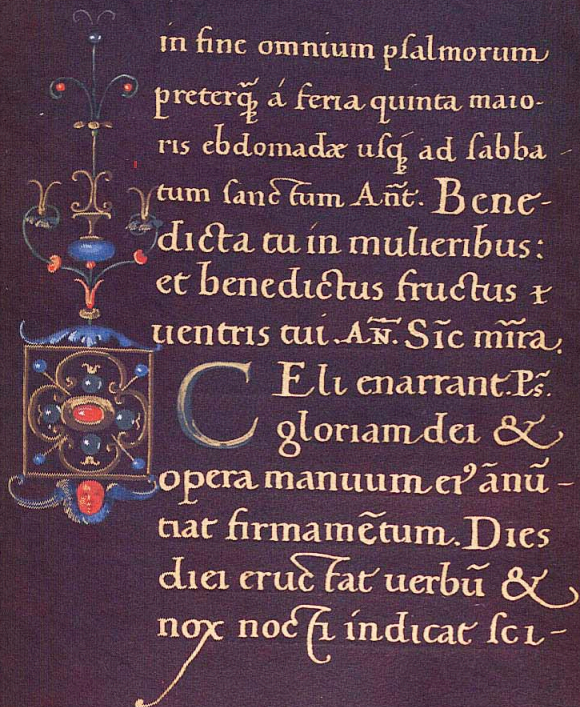 in fine omnium pſalmorum
preterq̃ꝫ á feria quinta maio-
ris ebdomadæ uſqꝫ ad ſabba-
tum ſanctum Añt. Bene-
dicta tu in mulieribus:
et benedictus fructus
uentris tui. AÑ. Sīc mĩra.
CEli enarrant. Ps̃.
gloriam dei &
opera manuum eiꝰ ãnũ-
tiat firmamẽtum. Dies
diei eructat uerbũ &
nox nocti indicat ſci-